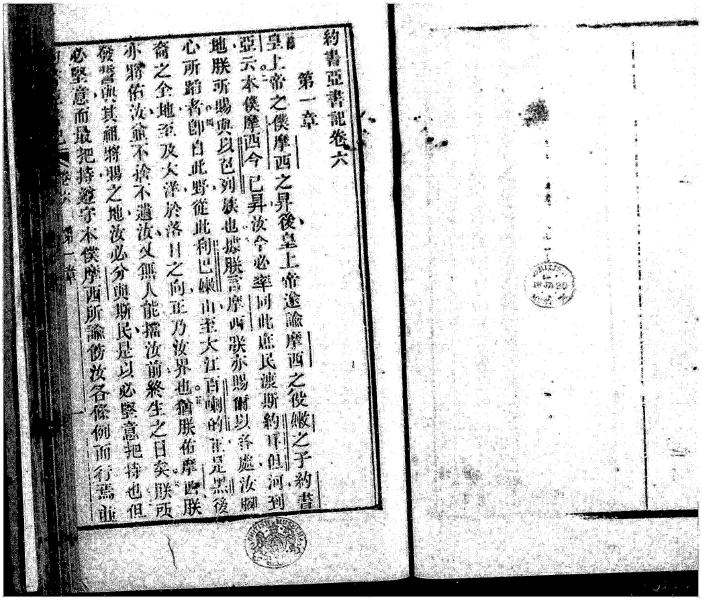 約書亞書記卷六
第一章
皇上帝之僕摩西之昇後皇上帝遂諭摩西之伇嫩之子約書
亞云本僕摩西今已昇汝今必率同此庶民渡斯約耳但河到
地朕所賜與以色列族也據朕言摩西朕亦賜爾以各處汝腳
心所踏者卽自此野從此利巴嫩山至大江百喇的正是黑後
裔之全地至及大洋於落日之向正乃汝界也猶朕佑摩西朕
亦將佑汝並不捨不遺汝又無人能擋汝前終生之日矣朕所
發誓與其祖將賜之地汝必分與斯民是以必堅意把持也但
必堅意而最把持遵守本僕摩西所諭飭汝各條例而行焉並
卷六 第一章